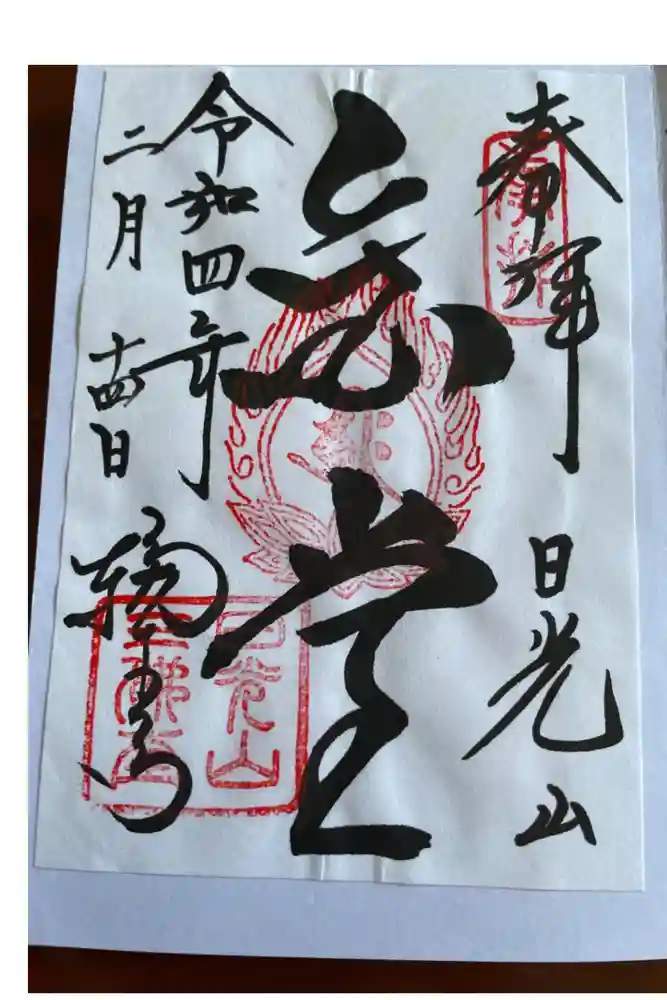 奉拝　日光山
金堂
令和四年
二月十四日
輪王寺
日光山
三佛堂